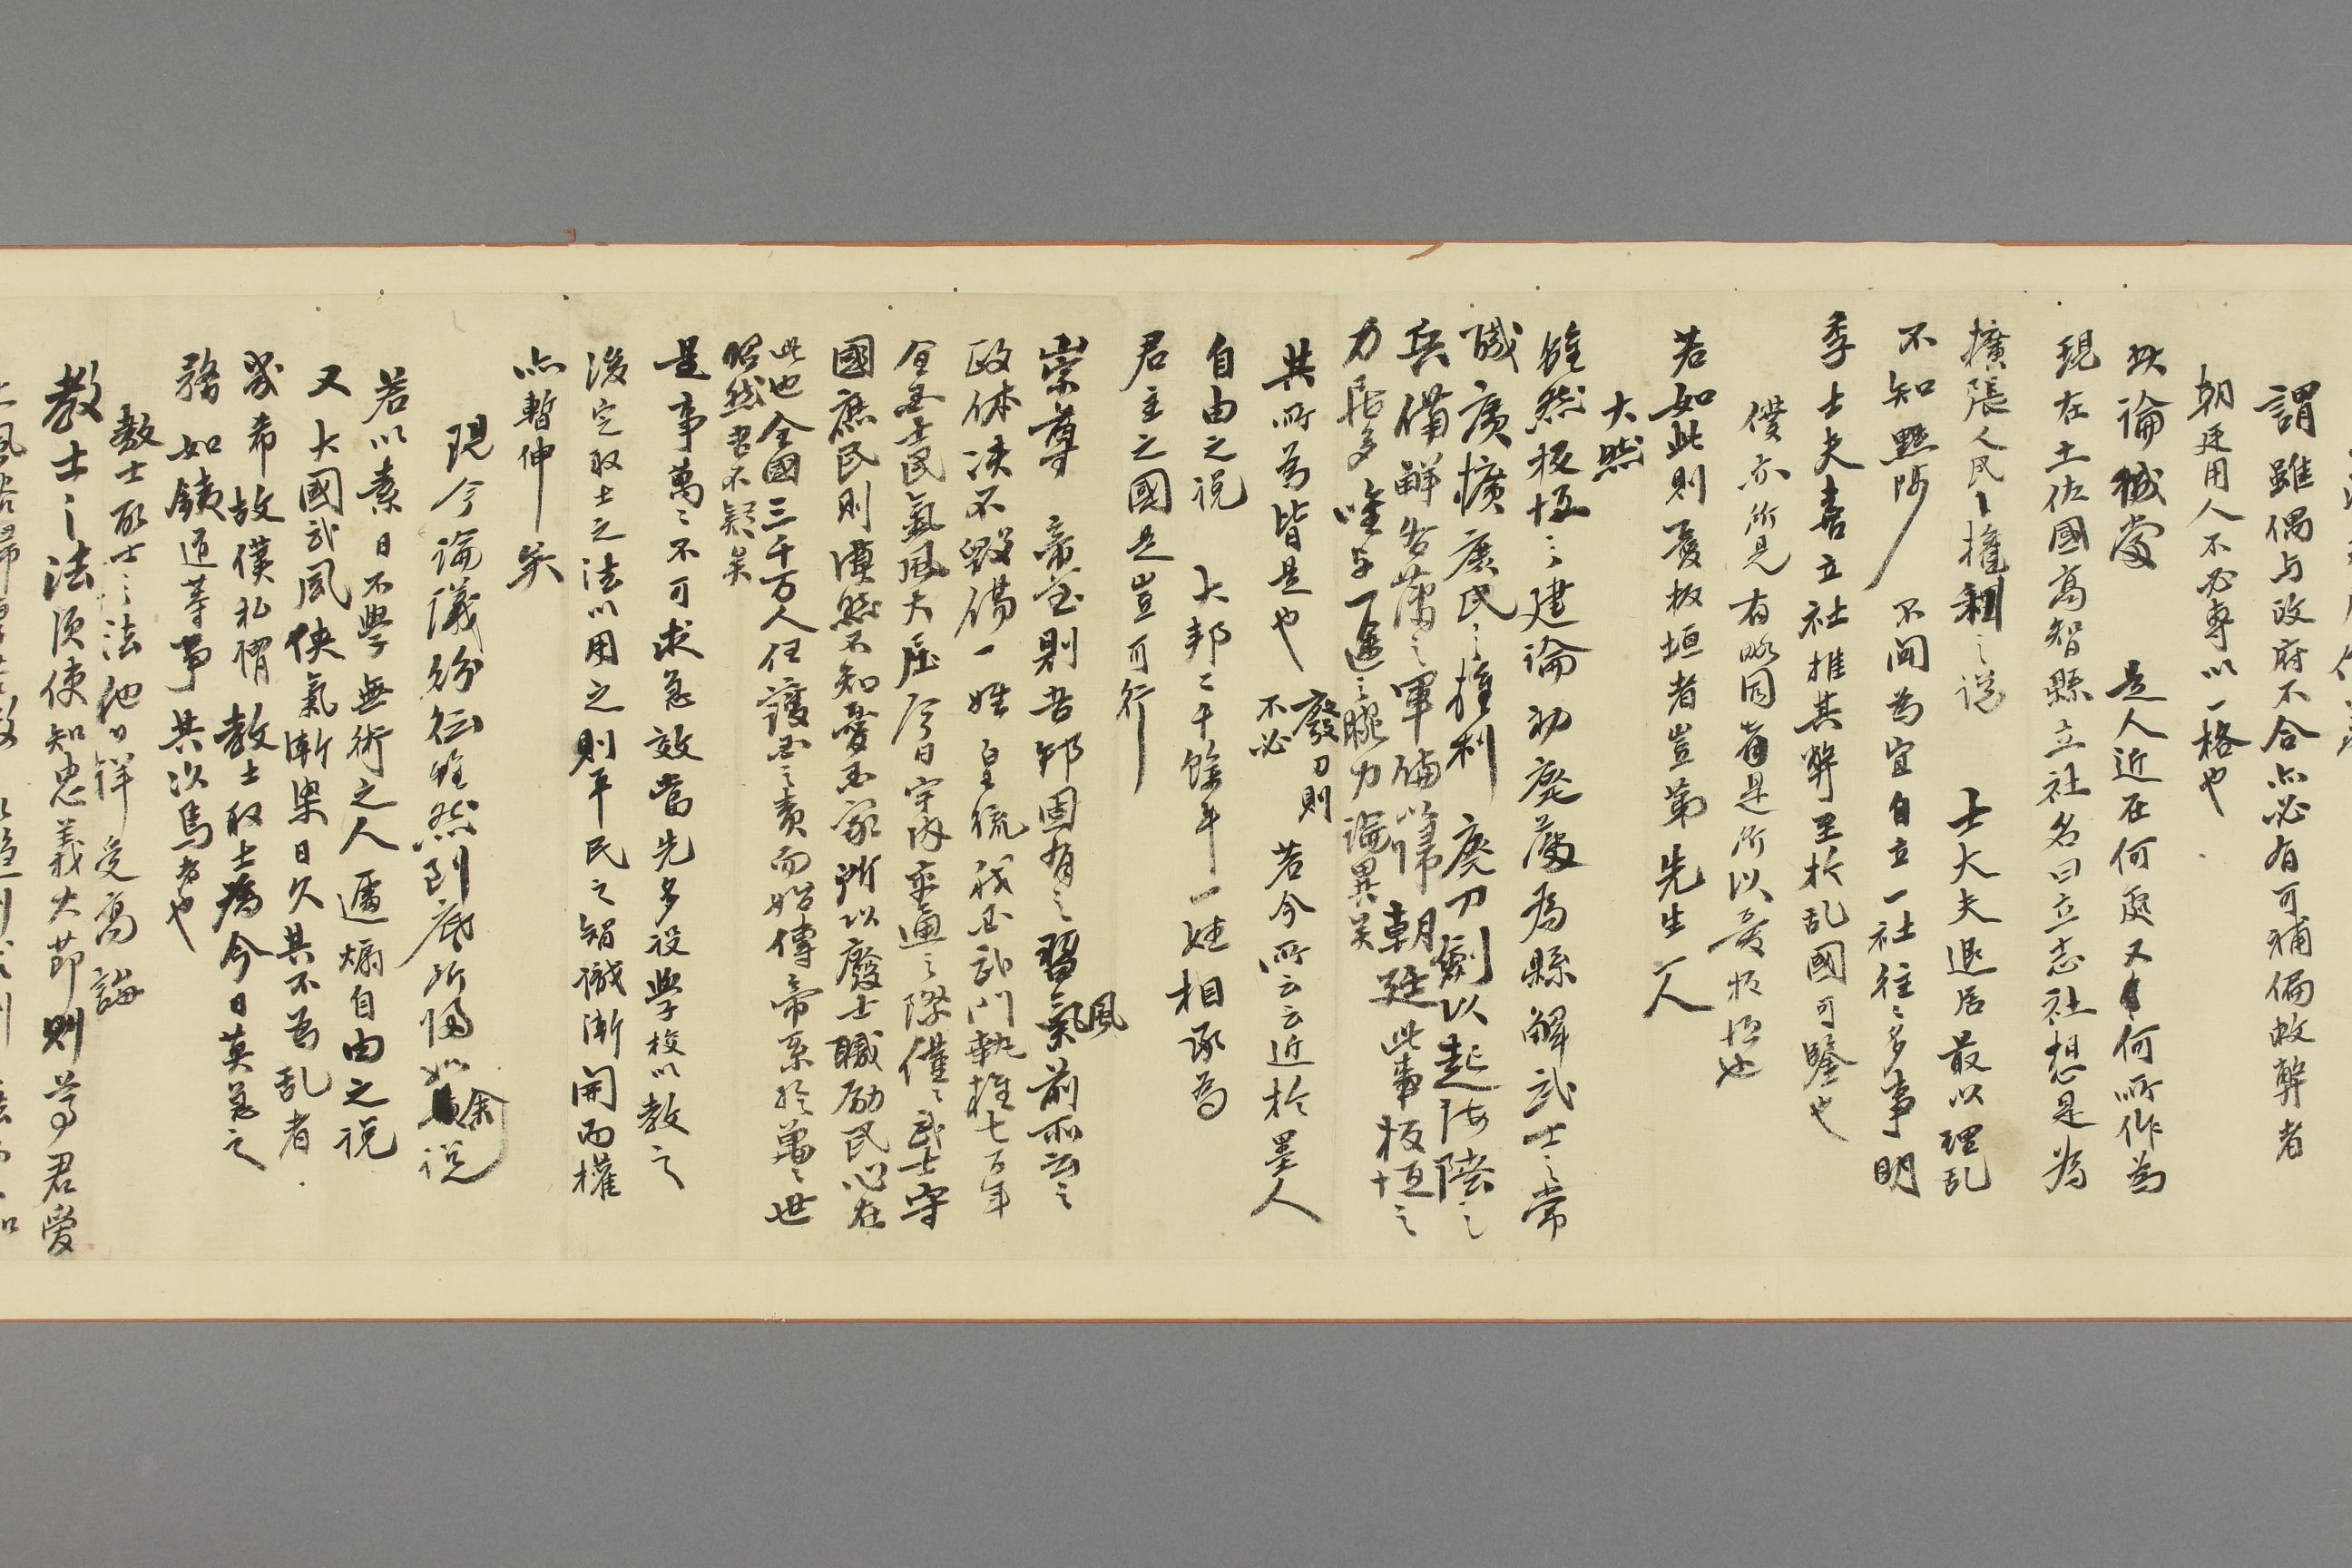 謂雖偶与政府不合亦必有可補偏救弊者
朝廷用人不必專以一格也
此論誠當 是人近在何處又何所作為
現在土佐國高智縣立社名曰立志社想是為
擴張人民之權利之說
士大夫退居最以理乱
不知黜陟 不聞為宜自立一社往々多事明
季士夫喜立社推其弊至於乱國可鑒也
僕亦所見有略同者是所以憂板垣也
若如此則憂板垣者豈第先生一人
大然
雖然板垣之建論初廢藩為縣解武士之常
職廣擴庶民之權利廃刀劍以起海陸之
兵備解各藩之軍備以帰朝廷此事板垣之
力居多唯与一進之腕力論異矣
其所為皆是也 廢刀則不必 若今所云云近於墨人
自由之説 大邦二千餘年一姓相承為
君主之國是豈可行
崇尊 帝室則吾邦固有之習氣風前所云之
政体决不毀傷一姓皇統我国武門執権七百年
全国士民氣風大壓今日宇内交通之際僅々武士守
國庶民則漠然不知憂国家所以廢士職励民心在
此也全國三千万人任護国之責而始傳帝系於萬々世
昭然吾不疑矣
是事萬々不可求急效當先多設學校以教之
後定取士之法以用之則平民之智徹漸開而權
亦暫伸矣
現今論議紛紜雖然到底所帰如余説
若以素日不學無術之人遽煽自由之説
又大國武風俠氣漸染日久其不為乱者
幾希故僕私謂教士取士為今日莫急之
務如鉄道等事其次焉者也
教士取士之法他日詳受高論
教士之法須使知忠義大節則尊君愛